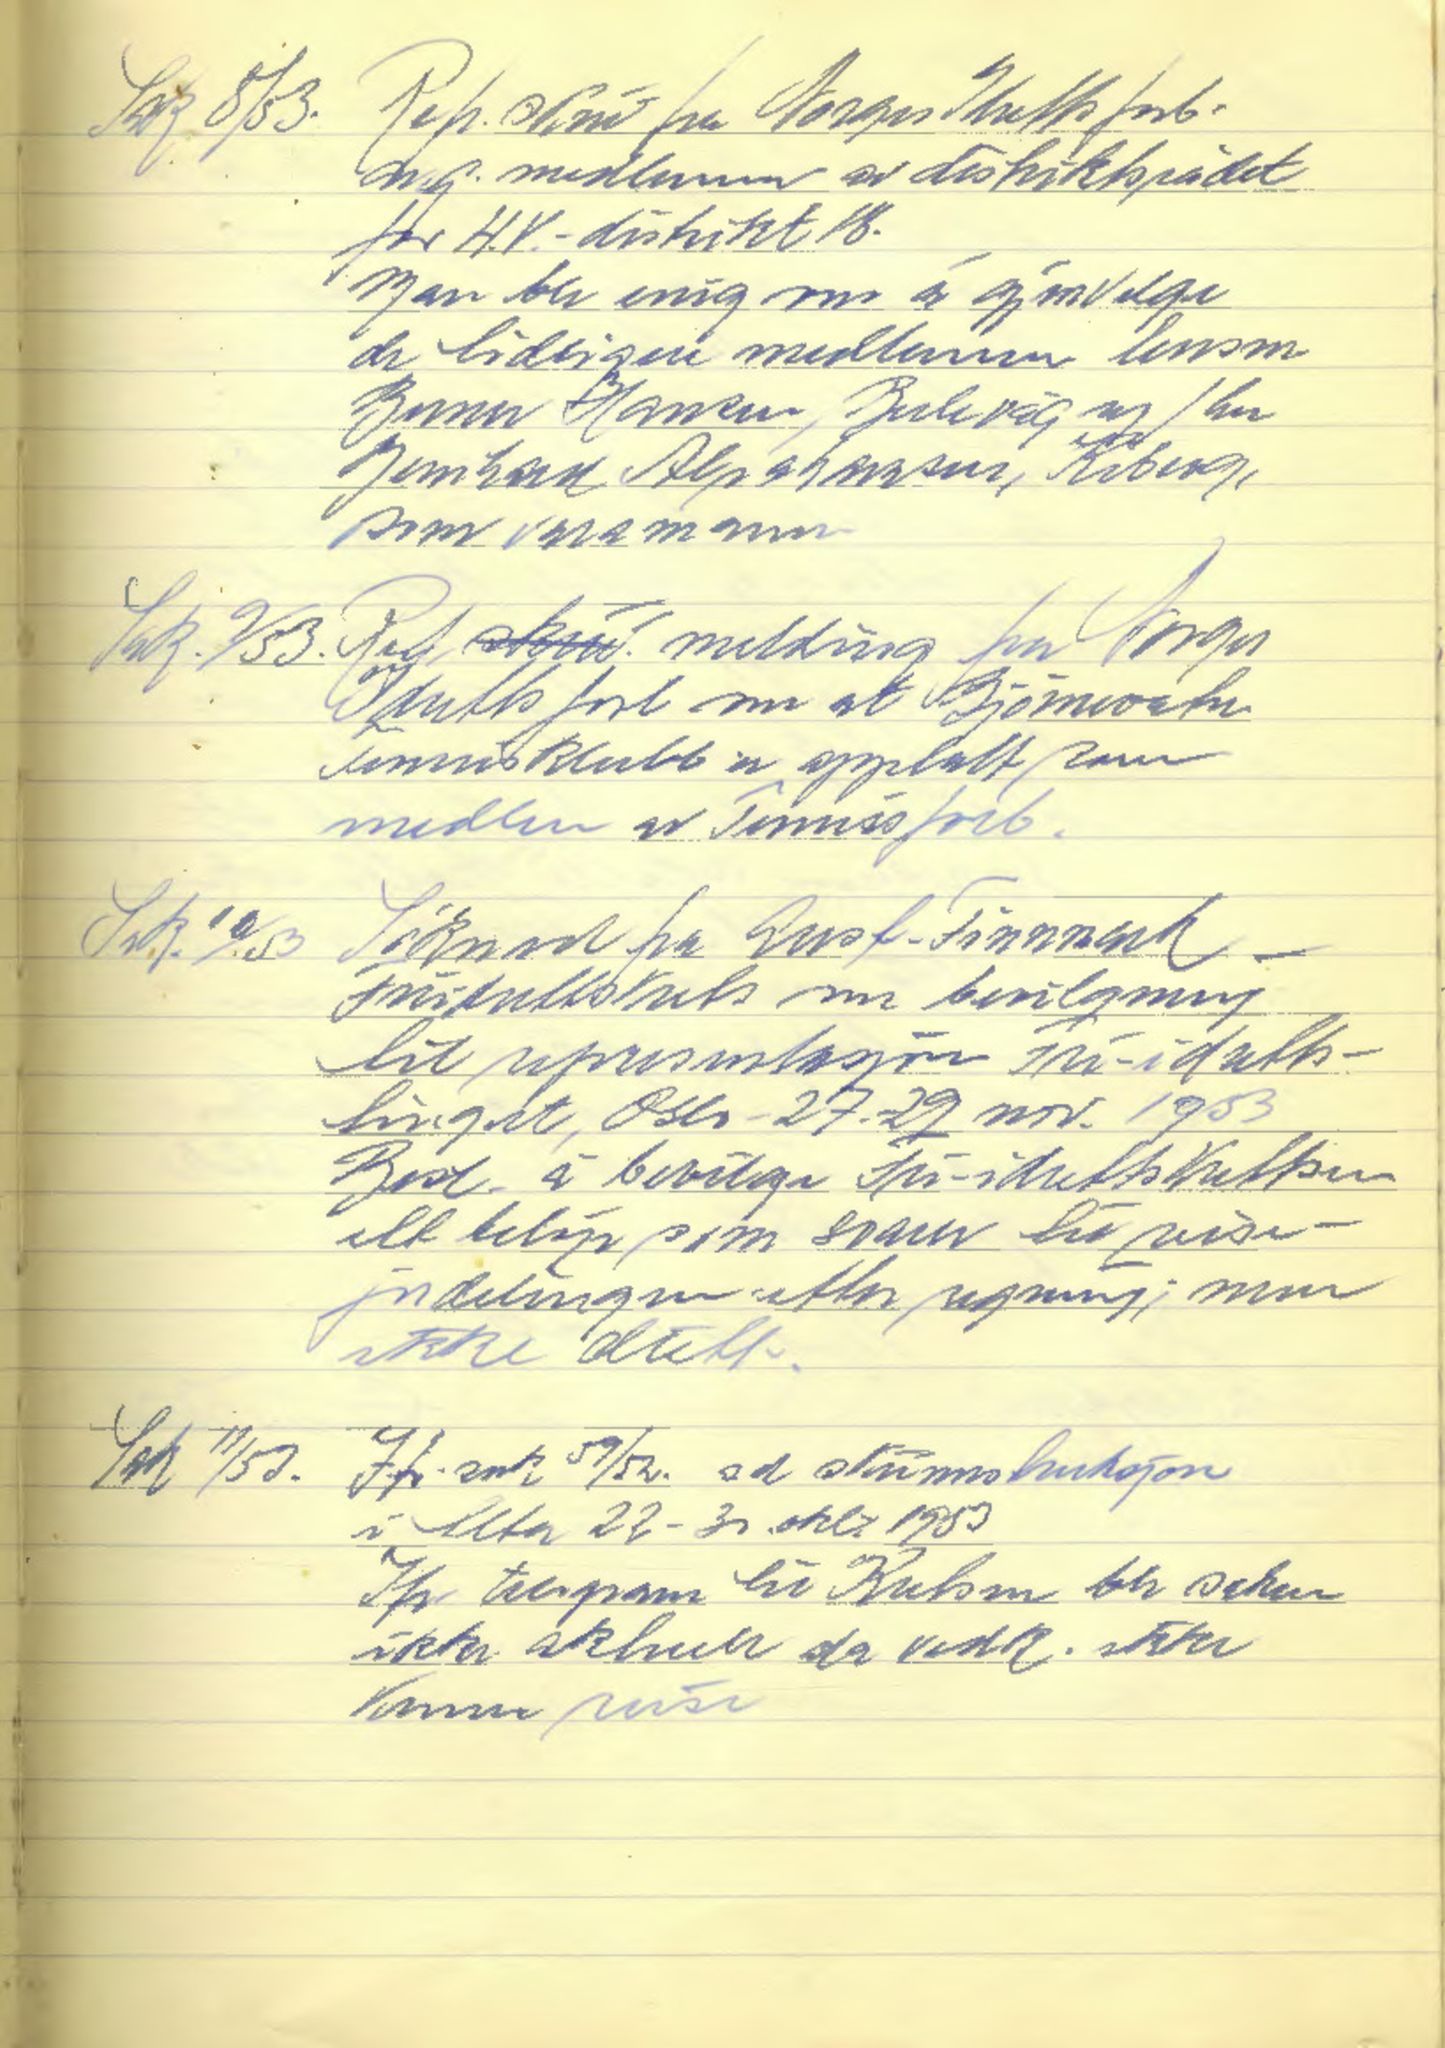 Sak 8/53. Ref. skriv fra Norges Idrettsforb.
ang. medlemmer av distriktsrådet
for H.V.-distrikt 18.
Man ble enig om å gjenvelge
de tidligere medlemmer lensm
Berner Hansen, Berlevåg og
Bernhard, Kiberg,
som varamann
Sak. 9/53. Ref. skriv. melding fra Norges
Idrettsforb om at Bjørnevatn
Tennisklubb er opptatt som
medlem av Tennisforb.
Sak. 10/53 Søknad fra Aust-Finnmark
Friidrettskrets om bevilgning
til representasjon Fri-idretts-
tinget, Oslo - 27-29 nov. 1953
Besl. å bevilge Fri-idrettskretsen
ett beløp som svarer til reise-
fordelingen etter regning, men
ikke diett.
Sak 11/53. Jfr. sak 59/52. ad skiinnstruksjon
i Alta 22 - 31. okt. 1953
Ifr telegram til Kretsen ble saken
ikke aktuell da vedk. ikke
kunne reise